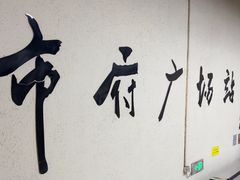 市府广场站